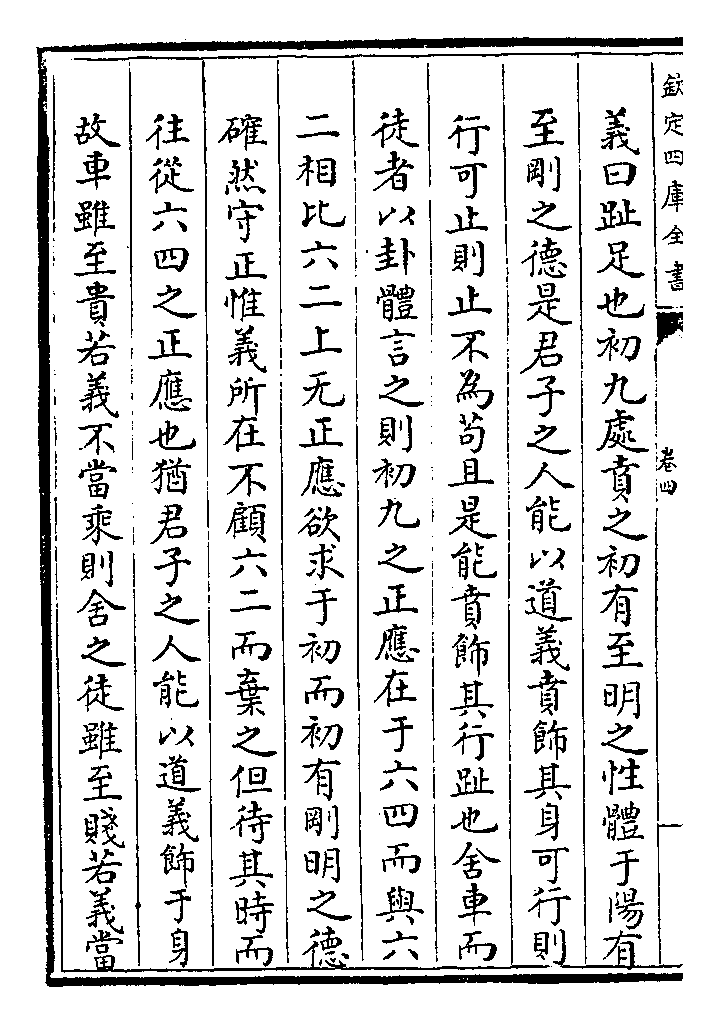 欽定四庫全書
卷四
義曰趾足也初九處賁之初有至明之性體于陽有
至剛之德是君子之人能以道義賁飾其身可行則
行可止則止不為苟且是能賁飾其行趾也舍車而
徒者以卦體言之則初九之正應在于六四而與六
二相比六二上无正應欲求于初而初有剛明之德
確然守正惟義所在不顧六二而棄之但待其時而
往從六四之正應也猶君子之人能以道義飾于身
故車雖至貴若義不當乘則舍之徒雖至賤若義當